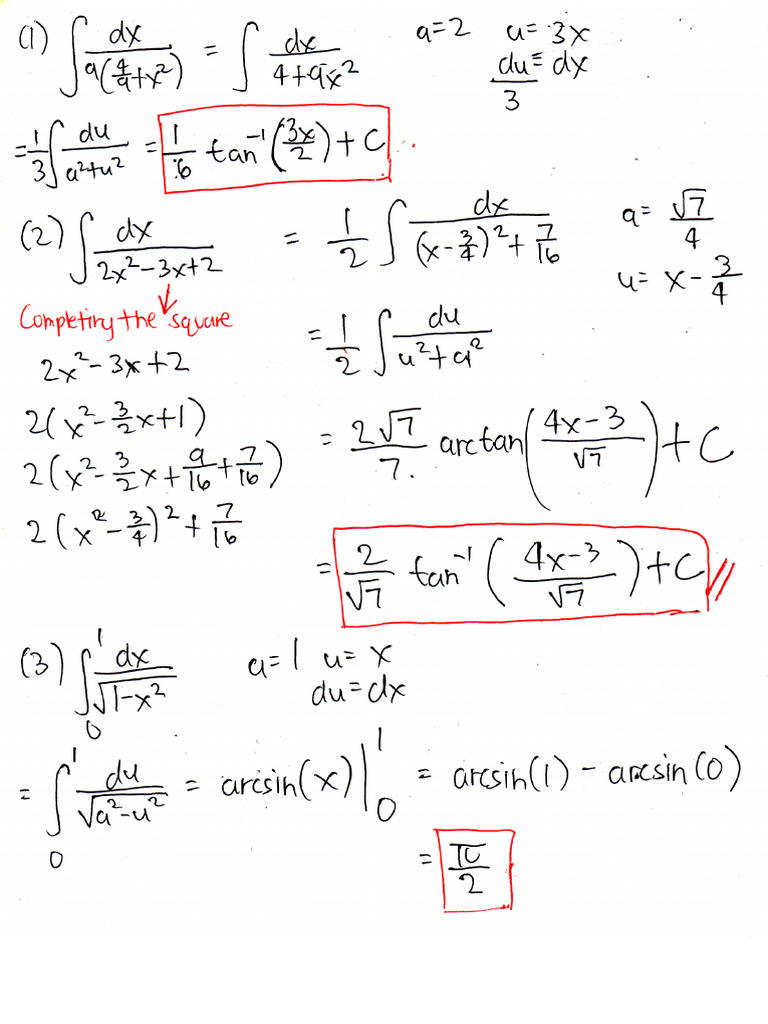 (1) ∫ dx / 9(4/9 + x²) = ∫ dx / 4+9x² a=2 u= 3x
du/3 = dx
= 1/3 ∫ du / a²+u² = 1/6 tan⁻¹(3x/2) + C
(2) ∫ dx / 2x²−3x+2 = 1/2 ∫ dx / (x−3/4)²+7/16 a= √7/4
u= x − 3/4
Completing the square
= 1/2 ∫ du / u²+a²
2x²−3x+2
2(x²−3/2x+1)
= 2√7/7. arctan(4x−3/√7) + C
2(x²−3/2x+9/16+7/16)
2(x²−3/4)²+7/16
= 2/√7 tan⁻¹(4x−3/√7) + C
(3) ∫₀¹ dx / √1−x² a=1 u= x
du=dx
= ∫₀¹ du / √a²−u² = arcsin(x)|₀¹ = arcsin(1) − arcsin(0)
= π/2